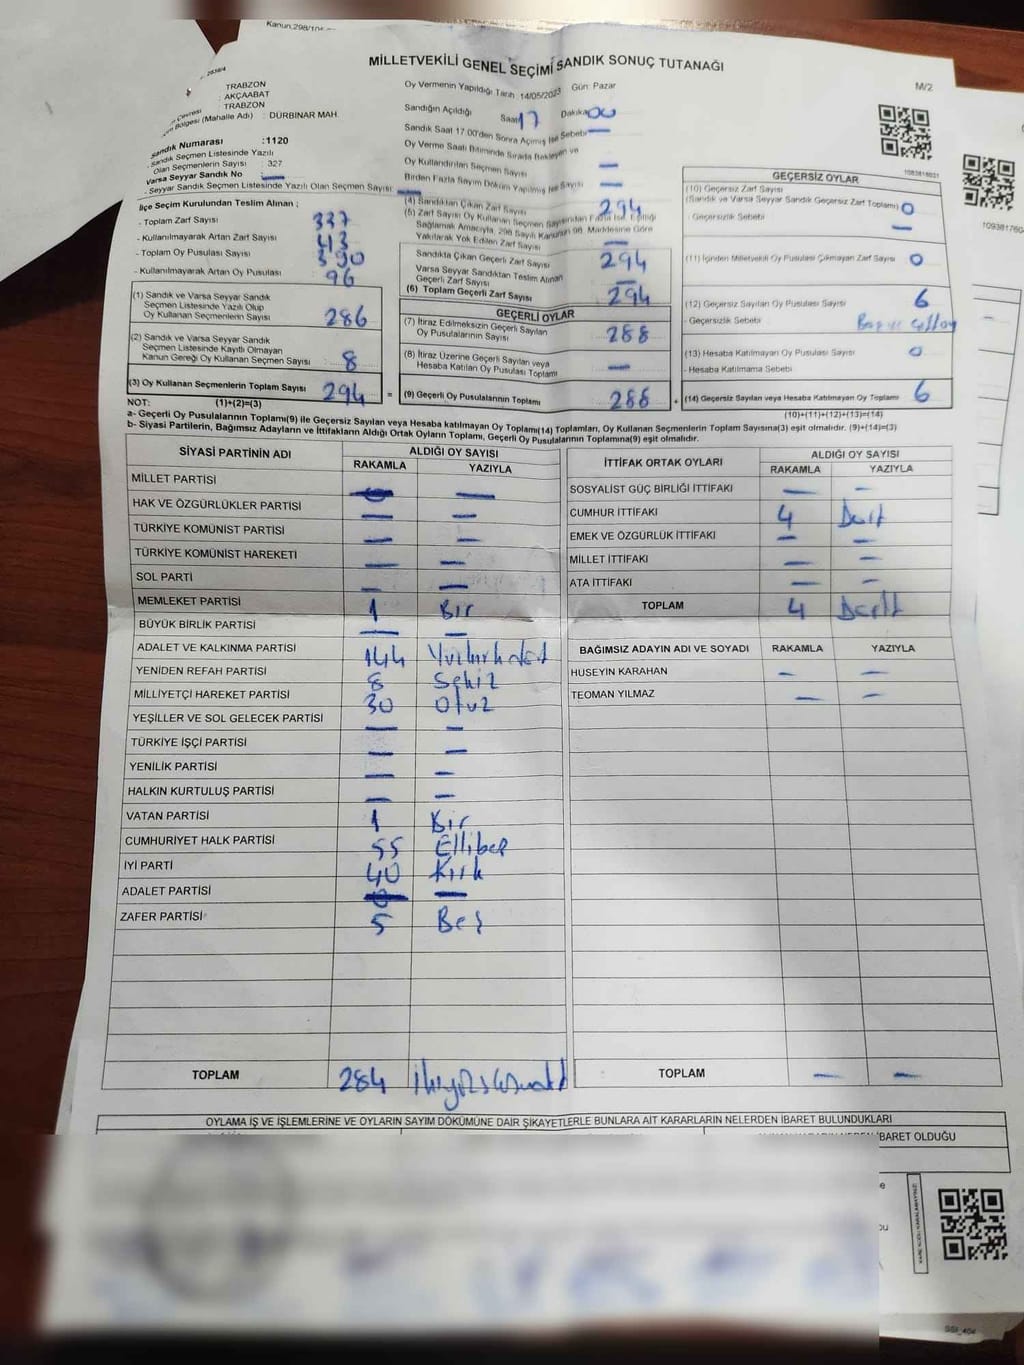 Kanun,298/10
MİLLETVEKİLİ GENEL SEÇİMİ SANDIK SONUÇ TUTANAĞI
M/2
TRABZON
AKÇAABAT
TRABZON
Bölgesi (Mahalle Adı) : DÜRBINAR MAH.
Sandık Numarası :1120
Sandık Seçmen Listesinde Yazılı
Olan Seçmenlerin Sayısı : 327
Varsa Seyyar Sandık No —
Seyyar Sandık Seçmen Listesinde Yazılı Olan Seçmen Sayısı: —
Oy Vermenin Yapıldığı Tarih 14/05/2023 Gün: Pazar
Sandığın Açıldığı Saat 17 Dakika 00
Sandık Saat 17.00'den Sonra Açılmış İse Sebebi —
Oy Verme Saati Bitiminde Sırada Bekleyen ve
Oy Kullandırılan Seçmen Sayısı —
Birden Fazla Sayım Döküm Yapılmış İse Sayısı —
(4) Sandıktan Çıkan Zarf Sayısı 294
(5) Zarf Sayısı Oy Kullanan Seçmen Sayısından Fazla İse, Eşitliği
Sağlamak Amacıyla, 298 Sayılı Kanunun 98. Maddesine Göre
Yakılarak Yok Edilen Zarf Sayısı —
Sandıkta Çıkan Geçerli Zarf Sayısı 294
Varsa Seyyar Sandıktan Teslim Alınan
Geçerli Zarf Sayısı —
(6) Toplam Geçerli Zarf Sayısı 294
İlçe Seçim Kurulundan Teslim Alınan ;
- Toplam Zarf Sayısı 337
- Kullanılmayarak Artan Zarf Sayısı 43
- Toplam Oy Pusulası Sayısı 390
- Kullanılmayarak Artan Oy Pusulası 96
(1) Sandık ve Varsa Seyyar Sandık
Seçmen Listesinde Yazılı Olup
Oy Kullanan Seçmenlerin Sayısı 286
(2) Sandık ve Varsa Seyyar Sandık
Seçmen Listesinde Kayıtlı Olmayan
Kanun Gereği Oy Kullanan Seçmen Sayısı 8
(3) Oy Kullanan Seçmenlerin Toplam Sayısı 294 =
GEÇERLİ OYLAR
(7) İtiraz Edilmeksizin Geçerli Sayılan
Oy Pusulalarının Sayısı 288
(8) İtiraz Üzerine Geçerli Sayılan veya
Hesaba Katılan Oy Pusulası Toplamı —
(9) Geçerli Oy Pusulalarının Toplamı 288 +
GEÇERSİZ OYLAR
(10) Geçersiz Zarf Sayısı
(Sandık ve Varsa Seyyar Sandık Geçersiz Zarf Toplamı) 0
- Geçersizlik Sebebi —
(11) İçinden Milletvekili Oy Pusulası Çıkmayan Zarf Sayısı 0
(12) Geçersiz Sayılan Oy Pusulası Sayısı 6
- Geçersizlik Sebebi
(13) Hesaba Katılmayan Oy Pusulası Sayısı 0
- Hesaba Katılmama Sebebi
(14) Geçersiz Sayılan veya Hesaba Katılmayan Oy Toplamı 6
NOT: (1)+(2)=(3)
(10)+(11)+(12)+(13)=(14)
a- Geçerli Oy Pusulalarının Toplamı(9) ile Geçersiz Sayılan veya Hesaba katılmayan Oy Toplamı(14) Toplamları, Oy Kullanan Seçmenlerin Toplam Sayısına(3) eşit olmalıdır. (9)+(14)=(3)
b- Siyasi Partilerin, Bağımsız Adayların ve İttifakların Aldığı Ortak Oyların Toplamı, Geçerli Oy Pusulalarının Toplamına(9) eşit olmalıdır.
SİYASİ PARTİNİN ADI ALDIĞI OY SAYISI
RAKAMLA YAZIYLA
MİLLET PARTİSİ —
HAK VE ÖZGÜRLÜKLER PARTİSİ — —
TÜRKİYE KOMÜNİST PARTİSİ — —
TÜRKİYE KOMÜNİST HAREKETİ — —
SOL PARTİ — —
MEMLEKET PARTİSİ 1 Bir
BÜYÜK BİRLİK PARTİSİ — —
ADALET VE KALKINMA PARTİSİ 144
YENİDEN REFAH PARTİSİ 8 Sekiz
MİLLİYETÇİ HAREKET PARTİSİ 30 Otuz
YEŞİLLER VE SOL GELECEK PARTİSİ — —
TÜRKİYE İŞÇİ PARTİSİ — —
YENİLİK PARTİSİ — —
HALKIN KURTULUŞ PARTİSİ — —
VATAN PARTİSİ 1 Bir
CUMHURİYET HALK PARTİSİ 55 Ellibeş
İYİ PARTİ 40 Kırk
ADALET PARTİSİ —
ZAFER PARTİSİ 5 Beş
TOPLAM 284
İTTİFAK ORTAK OYLARI ALDIĞI OY SAYISI
RAKAMLA YAZIYLA
SOSYALİST GÜÇ BİRLİĞİ İTTİFAKI — —
CUMHUR İTTİFAKI 4 Dört
EMEK VE ÖZGÜRLÜK İTTİFAKI — —
MİLLET İTTİFAKI — —
ATA İTTİFAKI — —
TOPLAM 4 Dört
BAĞIMSIZ ADAYIN ADI VE SOYADI RAKAMLA YAZIYLA
HÜSEYİN KARAHAN — —
TEOMAN YILMAZ — —
TOPLAM — —
OYLAMA İŞ VE İŞLEMLERİNE VE OYLARIN SAYIM DÖKÜMÜNE DAİR ŞİKAYETLERLE BUNLARA AİT KARARLARIN NELERDEN İBARET BULUNDUKLARI
İBARET OLDUĞU